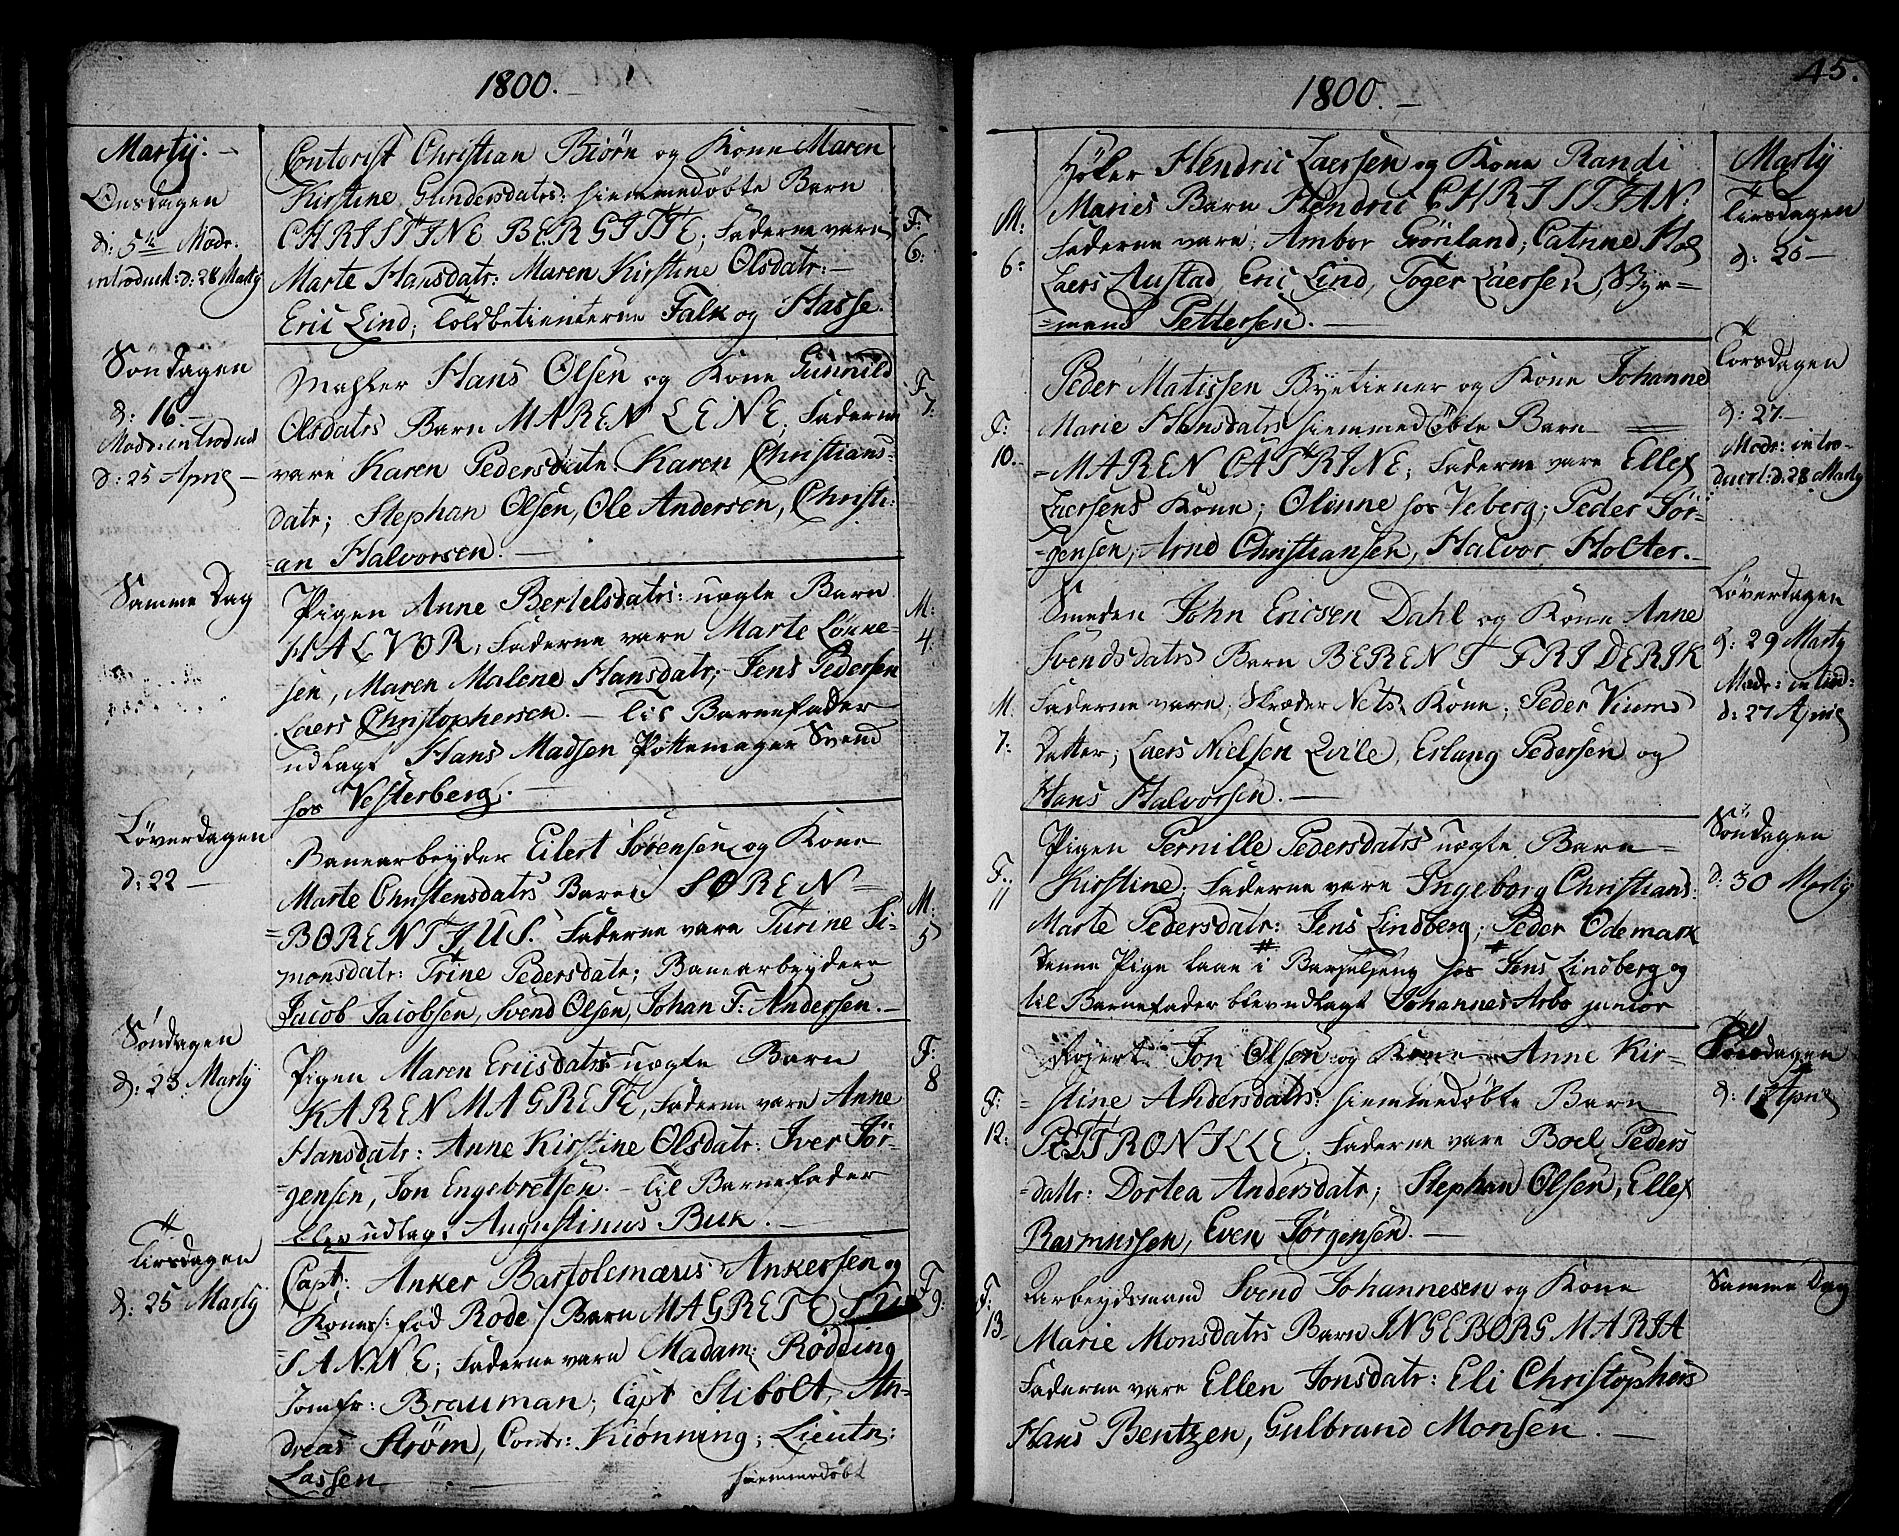 1800.
Martij.
Onsdagen
d: 5te Modr.
introduct: d: 28 Martij
Contorist Christian Biörn og Kone Maren
Kirstine Gundersdatrs: hiemmedöbte Barn
CHRISTINE BERGITTE; Fadderne vare
Marte Hansdatr: Maren Kirstine Olsdatr:
Eric Lind; Toldbetienterne Falk og Hasse.
F:
6:
Söndagen
d: 16
Modr: introduct
d: 25 April
Mahler Hans Olsen og Kone Gunnild
Olsdatrs Barn MAREN LENE; Fadderne
vare Karen Pedersdatr, Karen Christians-
datr; Stephan Olsen, Ole Andersen, Christi-
=an Halvorsen.
F
7:
Samme Dag
Pigen Anne Bertelsdatrs: uægte Barn
HALVOR, Fadderne vare Marte Lönne-
sen, Maren Malene Hansdatr; Jens Pedersen
Laers Christophersen. Til Barnefader
udlagt Hans Madsen Pottemager Svend
hos Vesterberg.
M:
4:
Löverdagen
d: 22
Banearbeyder Eilert Sørensen og Kone
Marte Christensdatrs Barn SØREN
=BØRENTIUS. Fadderne vare Turine Si-
monsdatr: Trine Pedersdatr; Banearbeydere
Jacob Jacobsen, Svend Olsen, Johan F: Andersen.
M:
5
Söndagen
d: 23 Martij
Pigen Maren Ericsdatrs uægte Barn
KAREN MAGRETE, Fadderne vare Anne
Hansdatr: Anne Kirstine Olsdatr: Iver Jör-
=gensen, Jon Engebretsen. Til Barnefader
blev udlagt Augustinus Buk.
F:
8
Tirsdagen
d: 25 Martij
Capt: Anker Bartolemæus Ankersen og
Kones: föd Rode / Barn MAGRETE SU
SANNE; Fadderne vare Madam: Rödding
Jomfr: Brauman; Capt Stibolt, An-
dreas Ström, Contr: Kiönning; Lieutn:
Lassen hiemmedöbt
F
9:
1800.
45.
Martij
Tirsdagen
d: 25
M:
6:
Höker Hendric Laersen og Kone Randi
Maries Barn Hendric CHRISTIAN:
Fadderne vare; Ambor Gröniland; Catrine Hol
Laers Austad, Eric Lind, Toger Laersen, Styr=
=mand Pettersen.
Torsdagen
d: 27
Modr: intro-
ducert: d: 28 Martij
F:
10.
Peder Matissen Byetiener og Kone Johanne
Marie Hansdatrs hiemmedöbte Barn
=MAREN CATRINE; Fadderne vare Ellef
Laersens Kone; Olinne hos Veberg; Peder Jör-
=gensen, Arne Christiansen, Halvor Holter.
Löverdagen
d: 29 Martij
Modr: introd:
d: 27 April
M.
7:
Smeden John Ericsen Dahl og Kone Anne
Svendsdatrs Barn BERENT FRIDERIK
Fadderne vare; Skræder Nets Kone; Peder Viums
Datter; Laers Nielsen Qvile, Erlang Pedersen og
Hans Halvorsen.
Söndagen
d: 30 Martij
F.
11
Pigen Pernille Pedersdatrs uægte Barn
Kirstine; Fadderne vare Ingeborg Christians:
Marte Pedersdatr: Jens Lindberg; Peder Odemark
Denne Pige laae i Barselseng hos Jens Lindberg og
til Barnefader blev udlagt Johannes Arbo junior
d: 1 April
F:
12:
Jon Olsen og Kone Anne Kir-
=stine Andersdatrs: hiemmedöbte Barn
PETRONILLE; Fadderne vare Boel Peders
=datr: Dortea Andersdatr; Stephan Olsen, Ellef
Rasmussen, Even Jørgensen.
Samme Dag
F:
13
Arbeydsmand Svend Johannesen og Kone
Marie Monsdatrs Barn INGEBORG MARIA
Fadderne vare Ellen Jonsdatr: Eli Christophers
Hans Bentzen, Gulbrand Monsen.